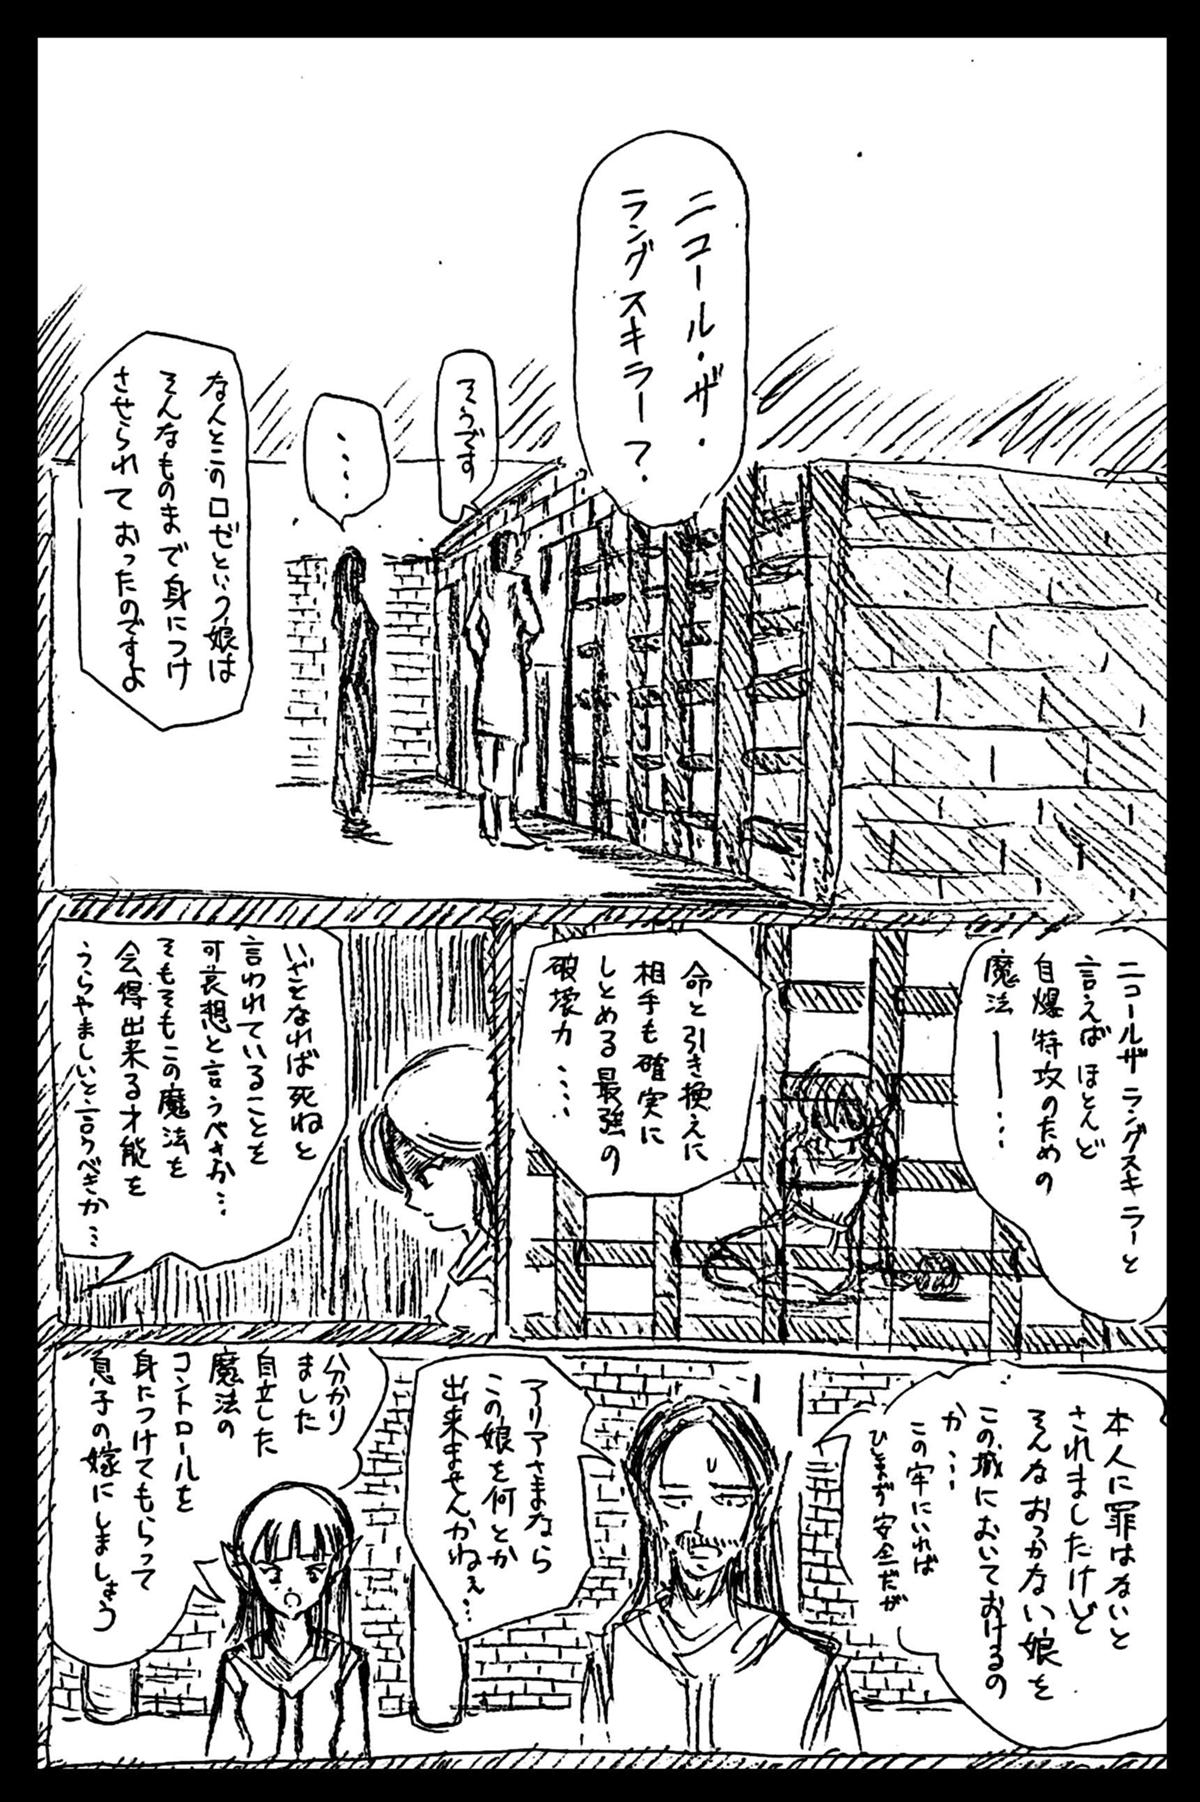 ニコール・ザ・
ラングスキラー?
そうです
・・・・
なんとこのロゼという娘は
そんなものまで身につけ
させられておったのですよ
ニコールザラングスキラーと
言えばほとんど
自爆特攻のための
魔法ー・・・
命と引き換えに
相手も確実に
しとめる最強の
破壊力・・・・
いざとなれば死ねと
言われていることを
可哀想と言うべきか・・
そもそもこの魔法を
会得出来る才能を
うらやましいと言うべきか・・
本人に罪はないと
されましたけど
そんなおっかない娘を
この城においておけるの
か・・・
この牢にいれば
ひとまず安全だが
アリアさまなら
この娘を何とか
出来ませんかねぇ・・
分かり
ました
自立した
魔法の
コントロールを
身につけてもらって
息子の嫁にしましょう